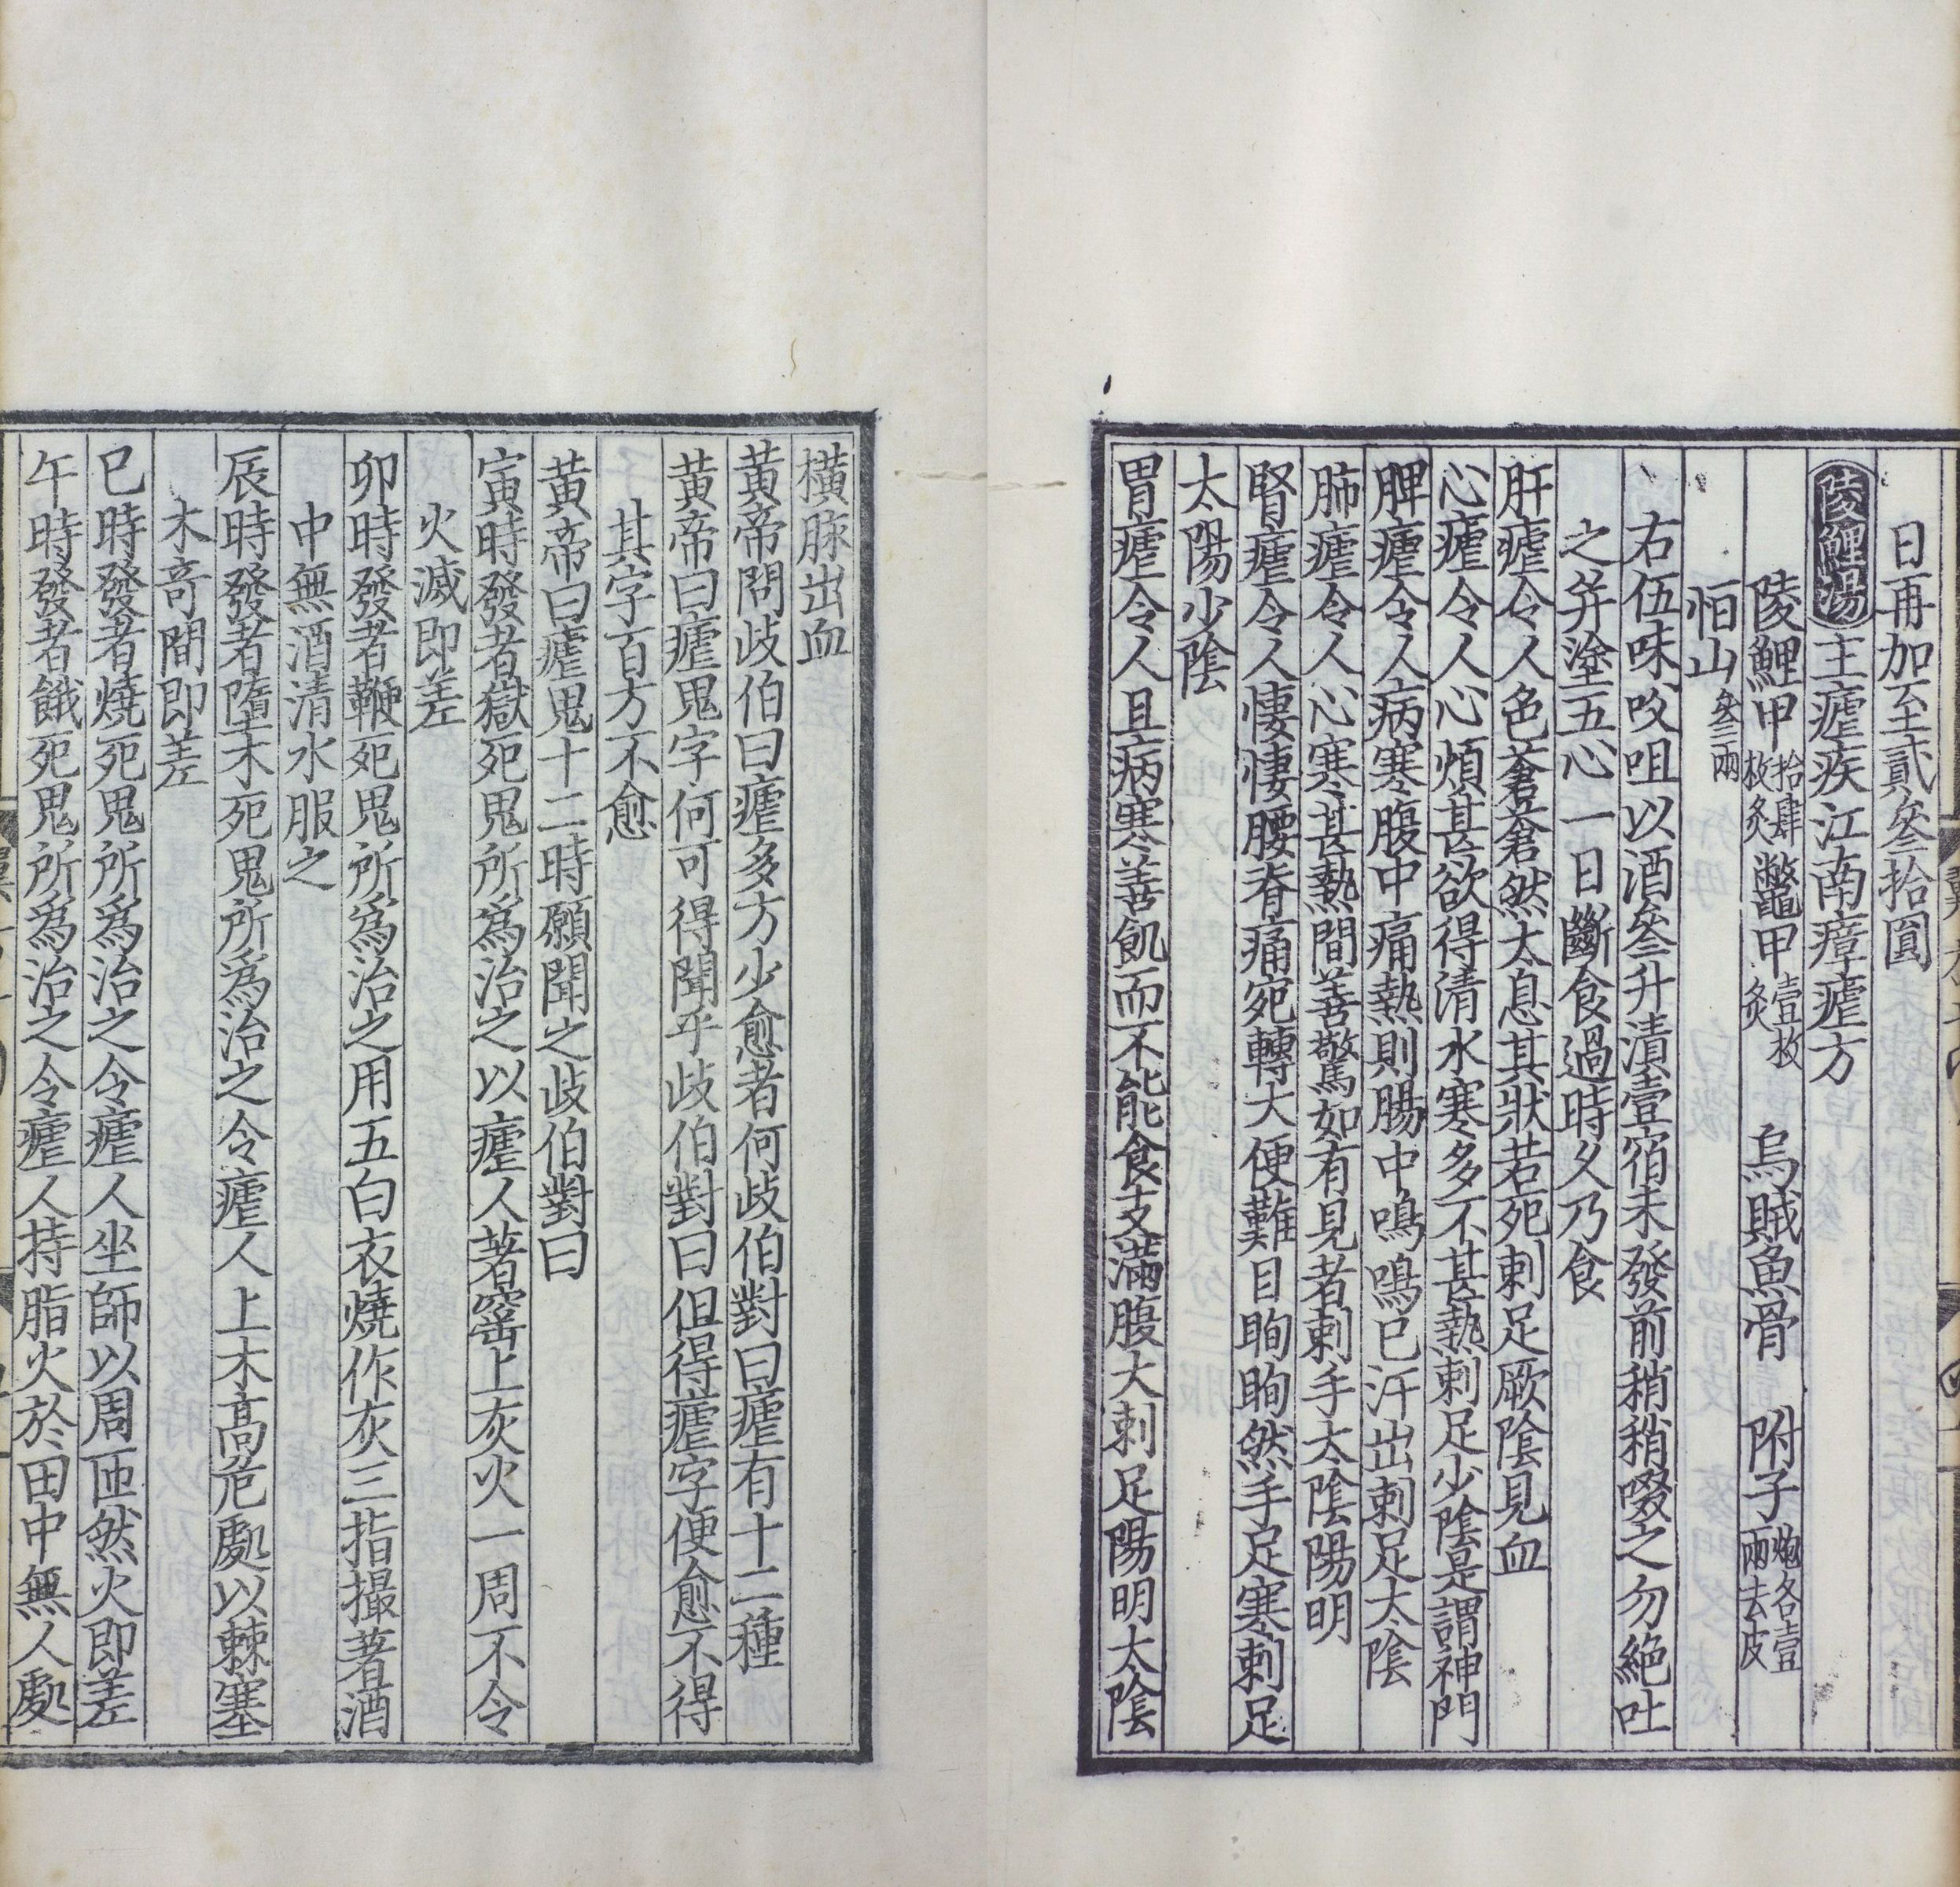 日再加至貳叄拾圓
陵鯉湯主瘧疾江南瘴瘧方
陵鯉甲拾肆枚炙 鼈甲壹枚炙 烏賊魚骨 附子炮各壹兩去皮
恒山叄兩
右伍味㕮咀以酒叄升漬壹宿未發前稍稍啜之勿絕吐
之并塗五心一日斷食過時久乃食
肝瘧令人色蒼蒼然太息其狀若死刺足厥陰見血
心瘧令人心煩甚欲得清水寒多不甚熱刺足少陰是謂神門
脾瘧令人病寒腹中痛熱則腸中鳴鳴已汗出刺足太陰
肺瘧令人心寒甚熱間善驚如有見者刺手太陰陽明
腎瘧令人悽悽腰脊痛宛轉大便難目眴眴然手足寒刺足
太陽少陰
胃瘧令人且病寒善飢而不能食支滿腹大刺足陽明太陰
橫脉出血
黃帝問歧伯曰瘧多方少愈者何歧伯對曰瘧有十二種
黃帝曰瘧鬼字何可得聞乎歧伯對曰但得瘧字便愈不得
其字百方不愈
黃帝曰瘧鬼十二時願聞之歧伯對曰
寅時發者獄死鬼所爲治之以瘧人著窰上灰火一周不令
火滅即差
卯時發者鞭死鬼所爲治之用五白衣燒作灰三指撮著酒
中無酒清水服之
辰時發者墮木死鬼所爲治之令瘧人上木高危處以棘塞
木奇間即差
巳時發者燒死鬼所爲治之令瘧人坐師以周匝然火即差
午時發者餓死鬼所爲治之令瘧人持脂火於田中無人處